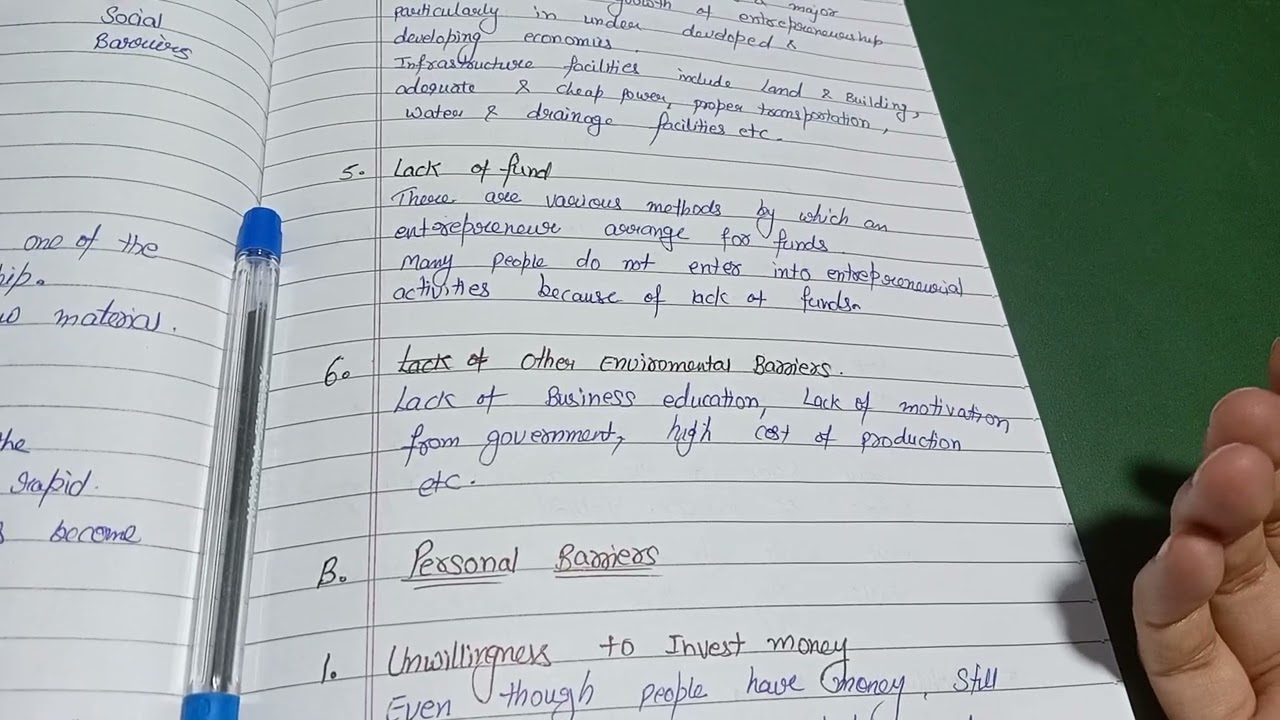 Social
Barriers
one of the
hip.
material.
the
rapid.
become
major
growth of entrepreneurship
particularly in under developed &
developing economies.
Infrastructure facilities include Land & Building,
adequate & cheap power, proper transportation,
water & drainage facilities etc.
5. Lack of fund
There are various methods by which an
entrepreneure arrange for funds
Many people do not enter into entrepreneurial
activities because of lack of funds.
6. Lack of Other Enviromental Barriers.
Lack of Business education, Lack of motivation
from government, high cost of production
etc.
B. Personal Barriers
1. Unwillingness to Invest money
Even though people have money, still